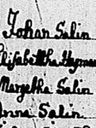 Johan Salin
Elisabettha Hegman
Margetha Salin
Anna Salin